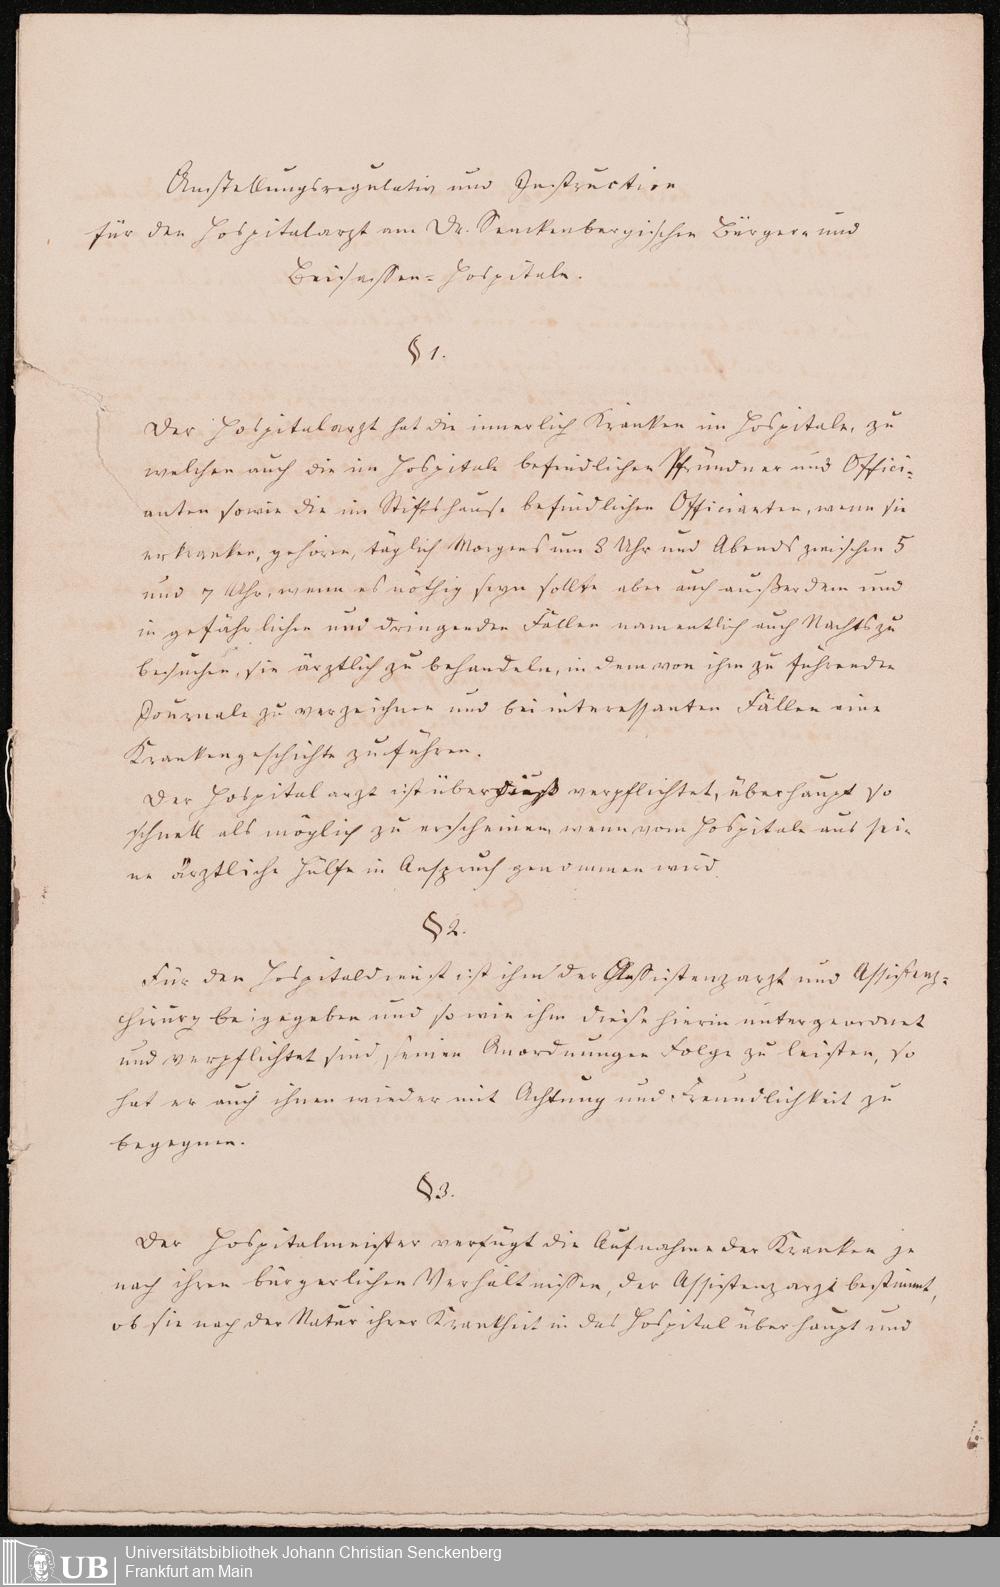 Anstellungsregulativ und Instruction
für den Hospitalarzt am Dr. Senckenbergischen Bürger- und
Beisassen-Hospitale.
§ 1.
Der Hospitalarzt hat die innerlich Kranken im Hospitale, zu
welchen auch die im Hospitale befindlichen Pfründner und Offici-
anten sowie die im Stiftshause befindlichen Officianten, wenn sie
erkranken, gehören, täglich Morgens um 8 Uhr und Abends zwischen 5
und 7 Uhr, wenn es nöthig seyn sollte aber auch außerdem und
in gefährlichen und dringenden Fällen namentlich auch Nachts zu
besuchen, sie ärztlich zu behandeln, in dem von ihm zu führenden
Journale zu verzeichnen und bei interessanten Fällen eine
Krankengeschichte zu führen.
Der Hospitalarzt ist überdieß verpflichtet, überhaupt so
schnell als möglich zu erscheinen wenn vom Hospitale aus sei-
ne ärztliche Hülfe in Anspruch genommen wird.
§ 2.
Für den Hospitaldienst ist ihm der Assistenzarzt und Assistenz-
chirurg beigegeben und so wie ihm diese hierin untergeordnet
und verpflichtet sind, seinen Anordnungen Folge zu leisten, so
hat er auch ihnen wieder mit Achtung und Freundlichkeit zu
begegnen.
§ 3.
Der Hospitalmeister verfügt die Aufnahme der Kranken je
nach ihren bürgerlichen Verhältnissen, der Assistenzarzt bestimmt,
ob sie nach der Natur ihrer Krankheit in das Hospital überhaupt und
UB
Universitätsbibliothek Johann Christian Senckenberg
Frankfurt am Main